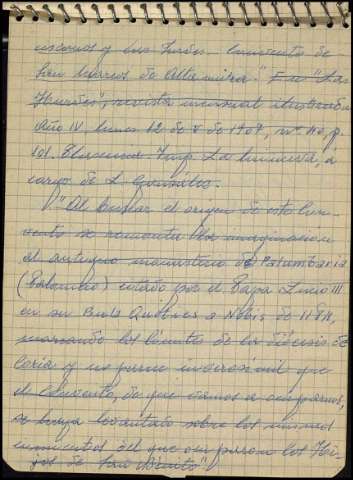 y las Jurdes. Convento de
San Marcos de Altamira." En "Las
Hurdes", revista mensual ilustrada
Año IV, lunes 12 de de 1907, nº 40, p.
101. Plasencia. Imp. La Primera, a
cargo de L. González.
"Al buscar el origen de este Con-
vento se remonta la imaginación
al antiguo monasterio de Palumbaria
(Palomero) citado por el Papa Lucio III
en su Bula Quotiens a Nobis de 1184,
marcando los límites de la diócesis de
Coria y no parece inverosímil que
el Convento, de que vamos a ocuparnos,
se haya levantado sobre los mismos
cimientos del que ocuparon los Hi-
jos de San Benito".